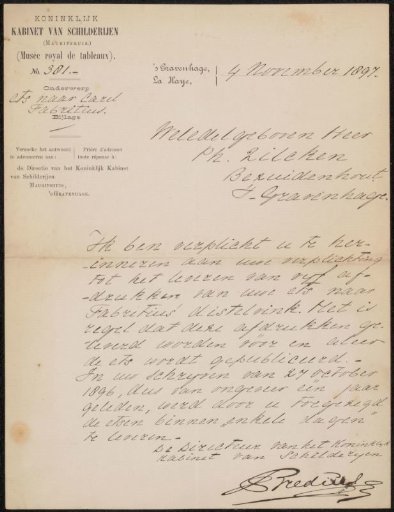 KONINKLIJK
KABINET VAN SCHILDERIJEN
(MAURITSHUIS)
(Musée royal de tableaux).
№ 381.-
Onderwerp
ets naar Carel
Fabritius.
Bijlage
Verzoeke het antwoord Prière d'adresser
te adresseeren aan: toute réponse à:
de Directie van het Koninklijk Kabinet
van Schilderijen
MAURITSHUIS,
'sGRAVENHAGE.
's Gravenhage,
La Haye,
4 November 1897.
Weledelgeboren Heer
Ph. Zilcken
Bezuidenhout
's-Gravenhage.
Ik ben verplicht u te her-
inneren aan uw verplichting
tot het leveren van vijf af-
drukken van uw ets naar
Fabritius distelvink. Het is
regel dat deze afdrukken ge-
leverd worden voor en aleer
de ets wordt gepubliceerd.-
In uw schrijven van 27 October
1896, dus van ongeveer één jaar
geleden, werd door u toegezegd
de etsen binnen "enkele dagen"
te leveren.-
De Directeur van het Koninklijk
Kabinet van Schilderijen
A Bredius